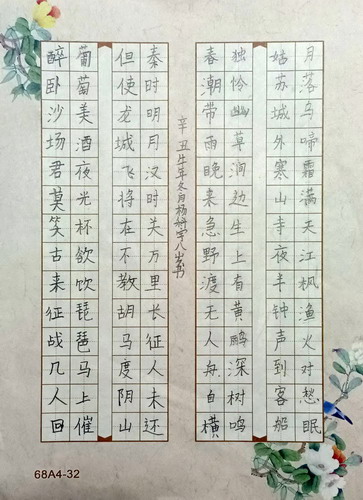 月落乌啼霜满天江枫渔火对愁眠
姑苏城外寒山寺夜半钟声到客船
独怜幽草涧边生上有黄鹂深树鸣
春潮带雨晚来急野渡无人舟自横
辛丑牛年冬月杨宇八岁书
秦时明月汉时关万里长征人未还
但使龙城飞将在不教胡马度阴山
葡萄美酒夜光杯欲饮琵琶马上催
醉卧沙场君莫笑古来征战几人回
68A4-32